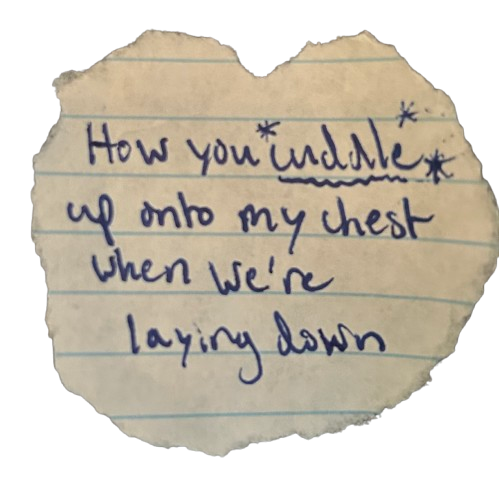 How you *cuddle*
up onto my chest
when we're
laying down